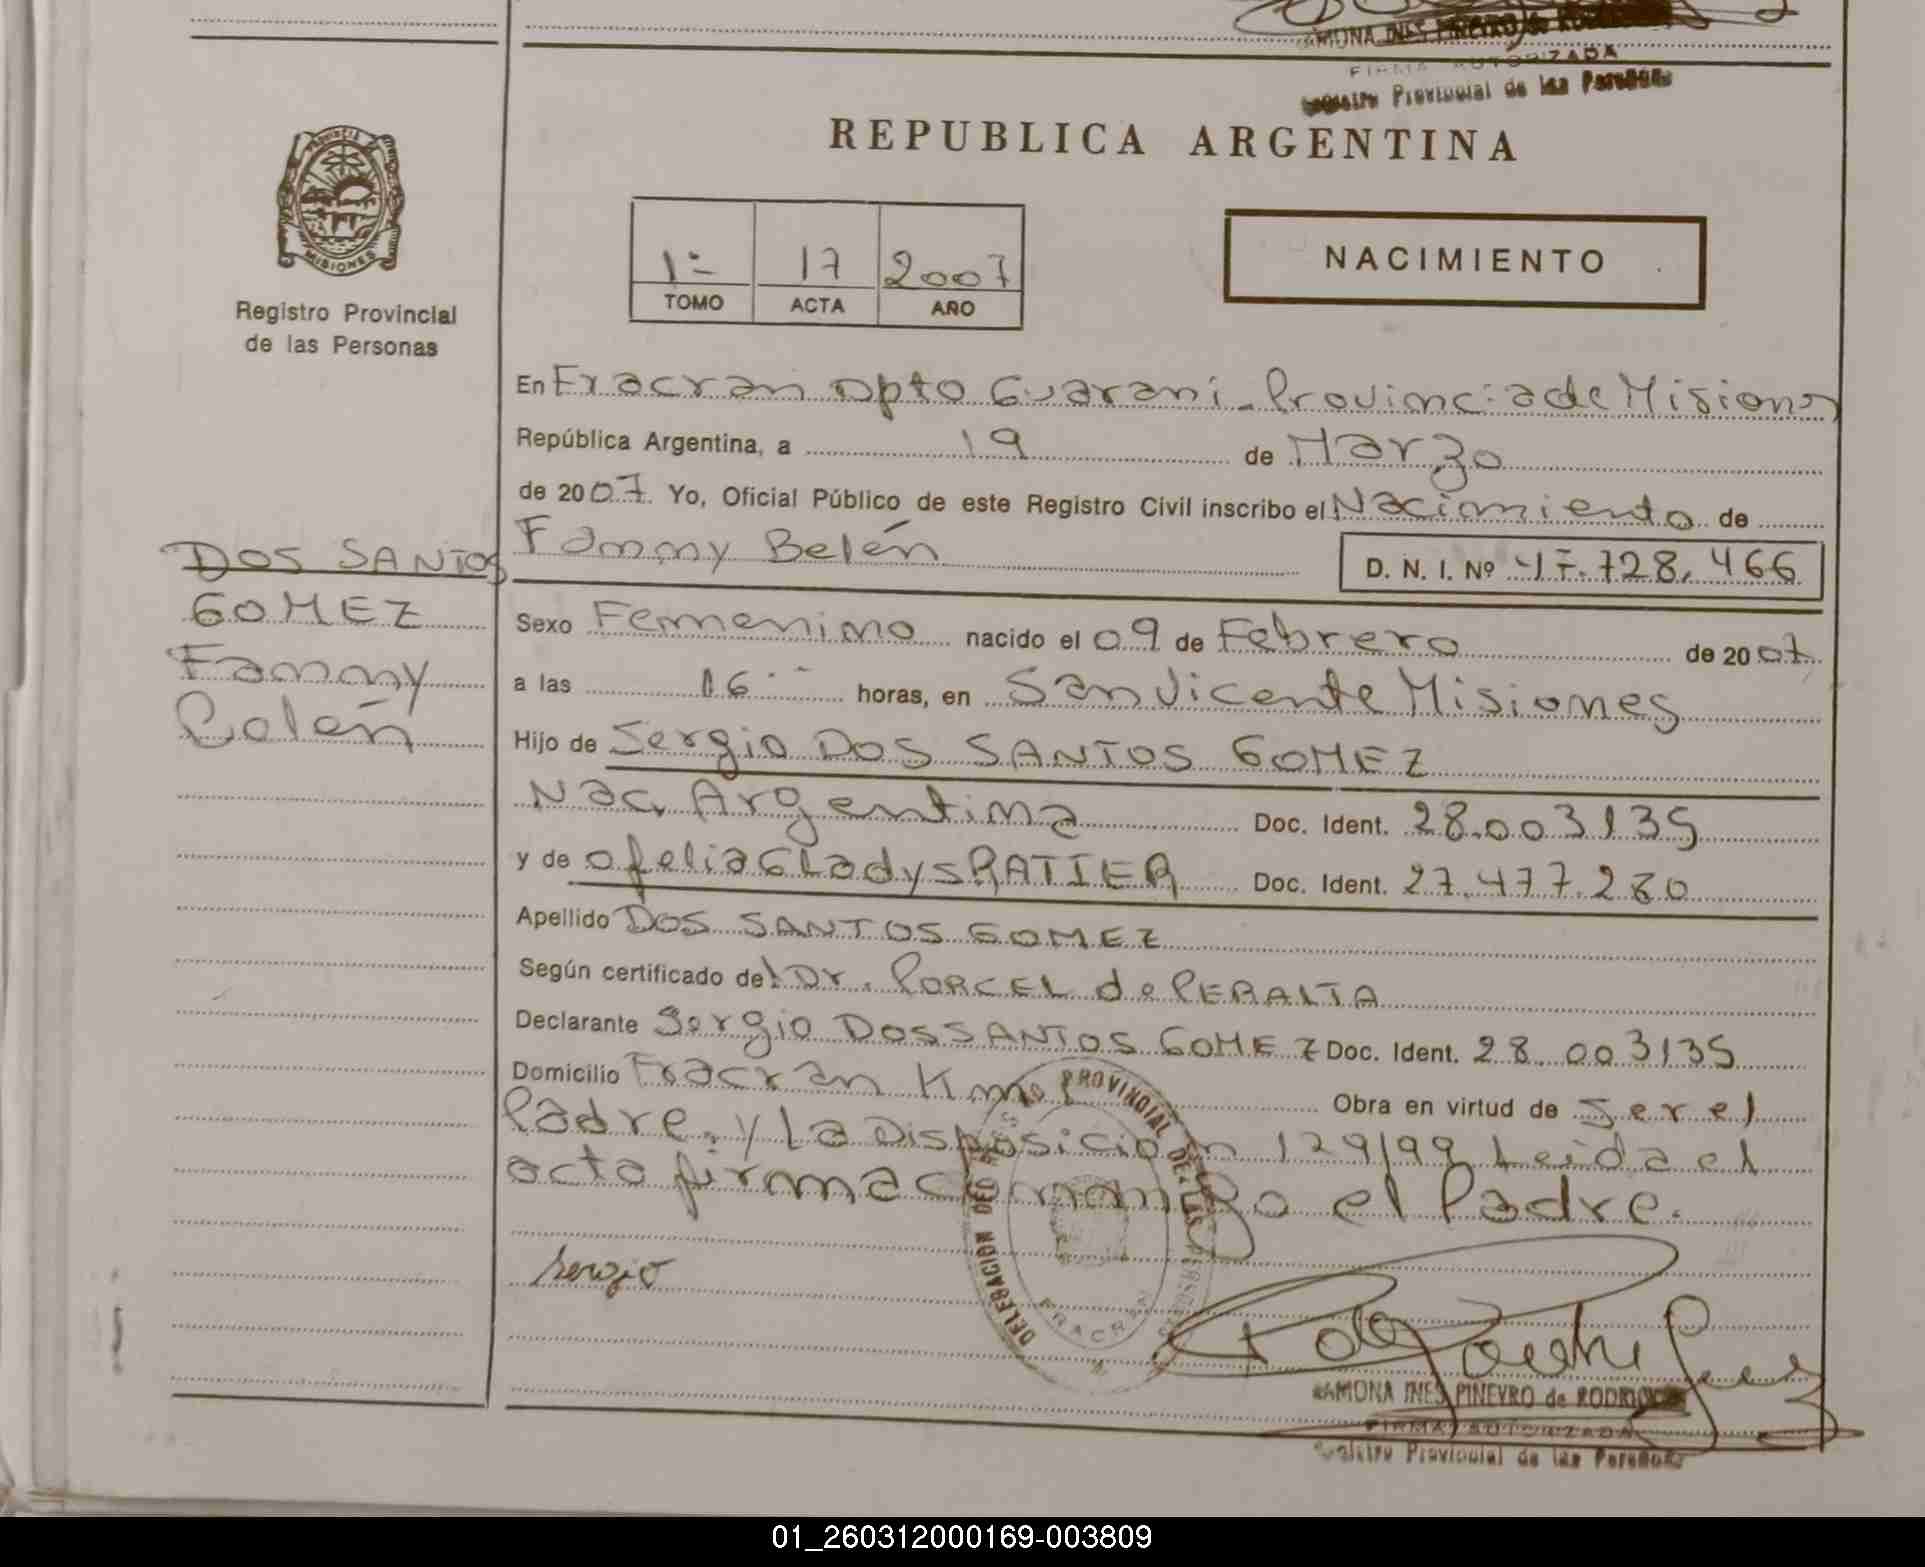 REPUBLICA ARGENTINA
PROVINCIA
MISIONES
Registro Provincial
de las Personas
1º 17 2007
TOMO ACTA AÑO
NACIMIENTO
En Fracran Dpto Guarani - Provincia de Misiones
República Argentina, a 19 de Marzo
de 2007. Yo, Oficial Público de este Registro Civil inscribo el Nacimiento de
Fammy Belén
D. N. I. Nº 47.728.466
DOS SANTOS
GOMEZ
Fammy
Belén
Sexo Femenino nacido el 09 de Febrero de 2007
a las 16 horas, en San Vicente Misiones
Hijo de Sergio DOS SANTOS GOMEZ
Nac. Argentina Doc. Ident. 28.003135
y de Ofelia Gladys RATIER Doc. Ident. 27.477.280
Apellido DOS SANTOS GOMEZ
Según certificado del Dr. PORCEL de PERALTA
Declarante Sergio DOS SANTOS GOMEZ Doc. Ident. 28.003135
Domicilio Fracran Km Obra en virtud de Ser el
Padre. y La Disposicion 129/99 Leida el
acta firma conmigo el Padre.
Sergio
DELEGACION DEL REGISTRO PROVINCIAL DE LAS PERSONAS
FRACRAN
RAMONA INES PINEYRO de RODRIGUEZ
FIRMA AUTORIZADA
Registro Provincial de las Personas
01_260312000169-003809